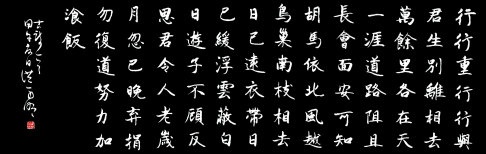 行行重行行與
君生別離相去
萬餘里各在天
一涯道路阻且
長會面安可知
胡馬依北風越
鳥巢南枝相去
日已遠衣帶日
已緩浮雲蔽白
日遊子不顧反
思君令人老歲
月忽已晚棄捐
勿復道努力加
飡飯